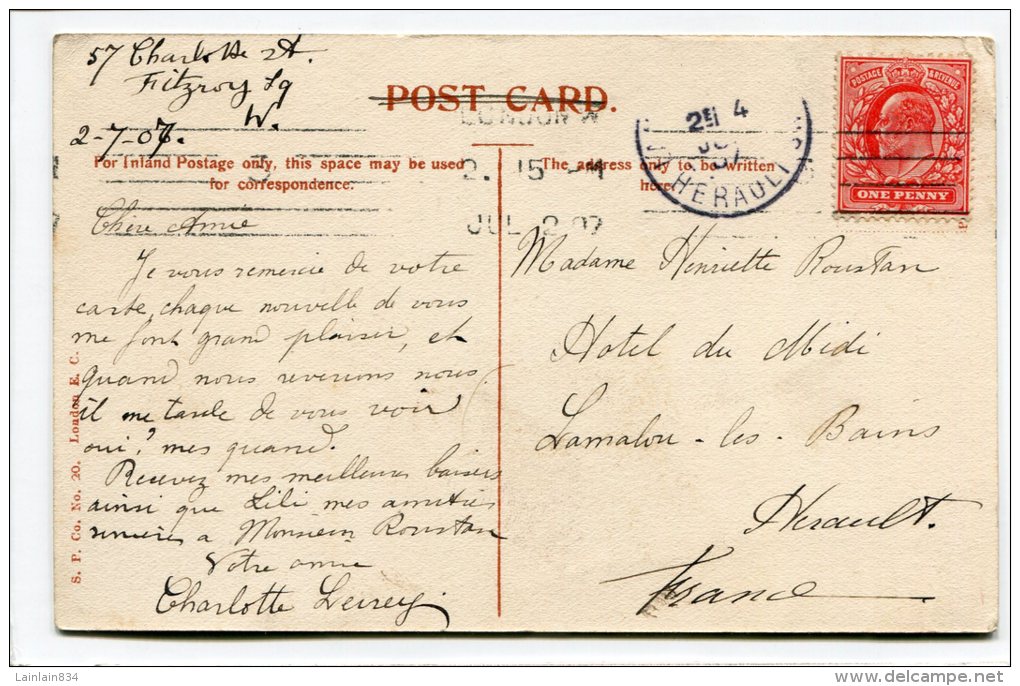 57 Charlotte St.
Fitzroy Sq
W.
2-7-07.
POST CARD.
LONDON W
2. 15
JUL 2 07
2E 4
07
HERAULT
POSTAGE & REVENUE
ONE PENNY
For Inland Postage only, this space may be used
for correspondence.
The address only to be written
here.
Chère Amie
Je vous remercie de votre
carte, chaque nouvelle de vous
me font grand plaisir, et
quand nous reverrons nous
il me tarde de vous voir
oui? mes quand.
Recevez mes meilleurs baisers
ainsi que Lili mes amitiés
a Monsieur Roustan
Votre amie
Charlotte
Madame Henriette Roustan
Hotel du Midi
Lamalou-les-Bains
Herault.
France
S. P. Co. No. 20. London E. C.
Lainlain834
delcampe.net